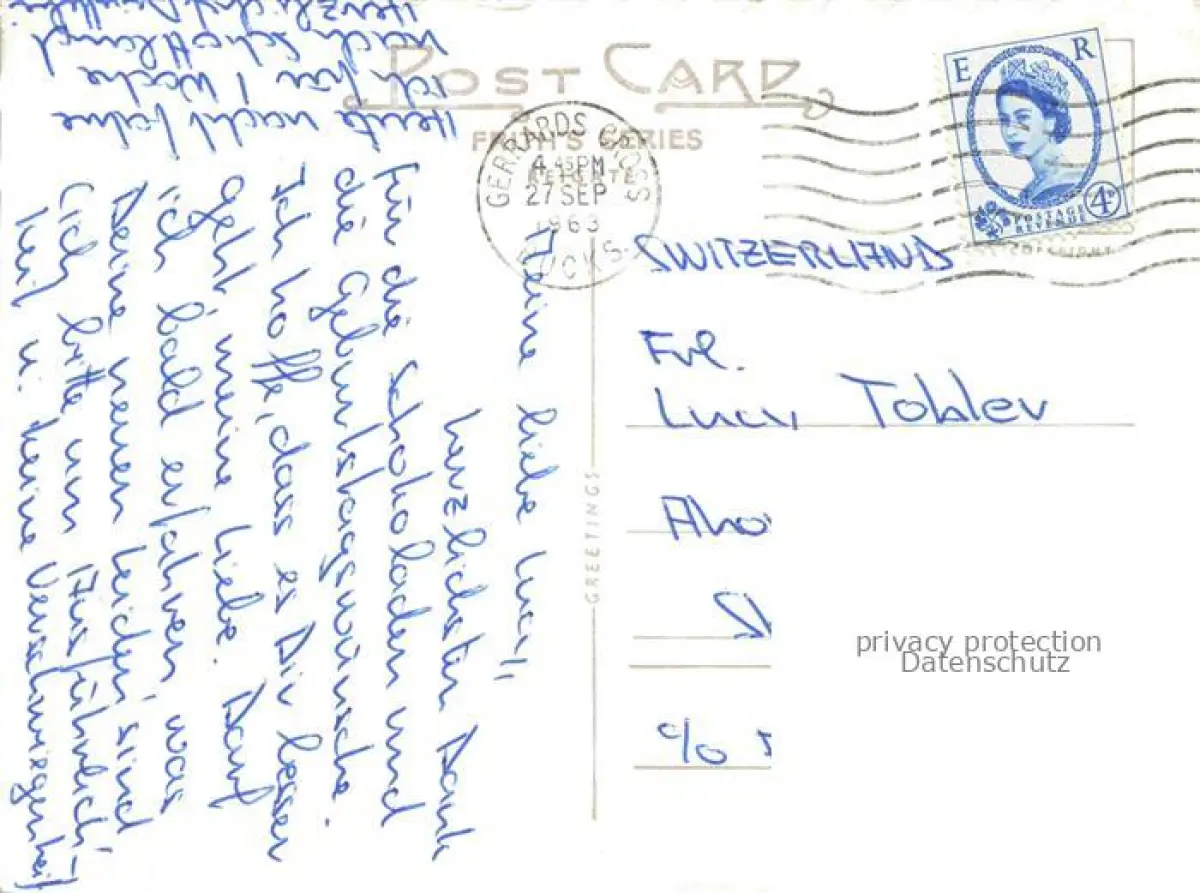 POST CARD
FRITH'S SERIES
REIGATE
GERRARDS CROSS
4.45PM
27 SEP
1963
BUCKS.
E R
4D
POSTAGE
REVENUE
COPYRIGHT
SWITZERLAND
Frl.
Lucy Tobler
c/o
privacy protection
Datenschutz
GREETINGS
Meine liebe Lucy,
herzlichsten Dank
für die Schokoladen und
die Geburtstagswünsche.
Ich hoffe, dass es Dir besser
geht, meine Liebe. Darf
ich bald erfahren, was
Deine neuen Leiden sind
(ich bitte um Ausführlich-
keit u. keine Verschwiegenheit)
Heute nacht fahre
ich für 1 Woche
nach Schottland
Herzlichst